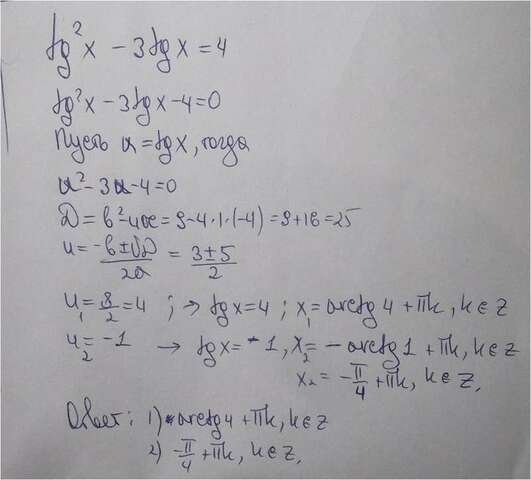 tg²x − 3tgx = 4
tg²x − 3tgx − 4 = 0
Пусть u = tgx, тогда
u² − 3u − 4 = 0
D = b² − 4ac = 9 − 4·1·(−4) = 9 + 16 = 25
u = (−b ± √D)/2a = (3 ± 5)/2
u₁ = 8/2 = 4 ; → tgx = 4 ; x₁ = arctg 4 + πk, k ∈ Z
u₂ = −1 → tgx = −1, x₂ = −arctg 1 + πk, k ∈ Z
x₂ = −π/4 + πk, k ∈ Z,
Ответ: 1) arctg 4 + πk, k ∈ Z
2) −π/4 + πk, k ∈ Z,